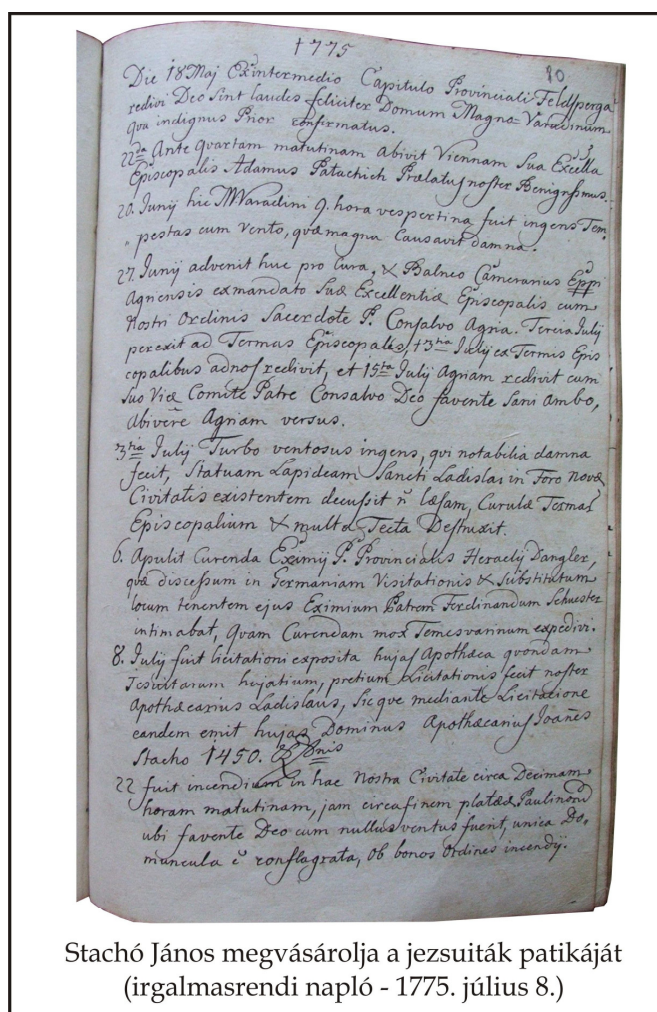 1775
Die 18 Maj Exintermedio Capitulo Provinciali Feldsperga
redivi Deo sint laudes feliciter Domum Magno-Varadinum
qva indignus Prior confirmatus.
22da Ante Quartam matutinam abivit Viennam Sua Excella
Episcopalis Adamus Patachich Prælatus noster Benignssmus.
20. Junij hic MVaradini 9. hora vespertina fuit ingens Tem„
„ pestas cum Vento, qvæ magna Causavit damna.
27. Junij advenit huc pro Cura, & Balneo Camerarius Eppi
Agriensis exmandato Suæ Excellentiæ Episcopalis cum
Nostri Ordinis Sacerdote P. Consalvo Agria. Tercia Julij
perexit ad Termas Episcopales, 13tia Julij ex Termis Epis
copalibus adnos redivit, et 15ta Julij Agriam redivit cum
suo Viæ Comite Patre Consalvo Deo favente sani ambo,
abivere Agriam versus.
3tia Julij Turbo ventosus ingens, qvi notabilia damna
fecit, Statuam Lapideam Sancti Ladislai in Foro novæ
Civitatis existentem decussit n læsam, Curulæ Termas
Episcopalium & multa Tecta Destruxit.
6. Apulit Curenda Eximij P. Provincialis Heraclij Dangler,
qvæ discessum in Germaniam Visitationis & substitutum
locum tenentem ejus Eximium Patrem Ferdinandum Schuester
intimabat, Qvam Curendam mox Temesvarinum expedivi.
8. Julij fuit licitationi exposita hujas Apothæca qvondam
Jesuitarum hujatium, pretium Licitationis fecit noster
Apothæcarius Ladislaus, sicqve mediante Licitacione
eandem emit hujas Dominus Apothæcarius Joanes
Stacho 1450.
22 fuit incendium in hac Nostra Civitate circa Decimam
horam matutinam, jam circa finem plateæ Paulinorum
ubi favente Deo cum nullus ventus fuerit, unica Do„
muncula e conflagrata, ob bonos Ordines incendij.
Stachó János megvásárolja a jezsuiták patikáját
(irgalmasrendi napló - 1775. július 8.)